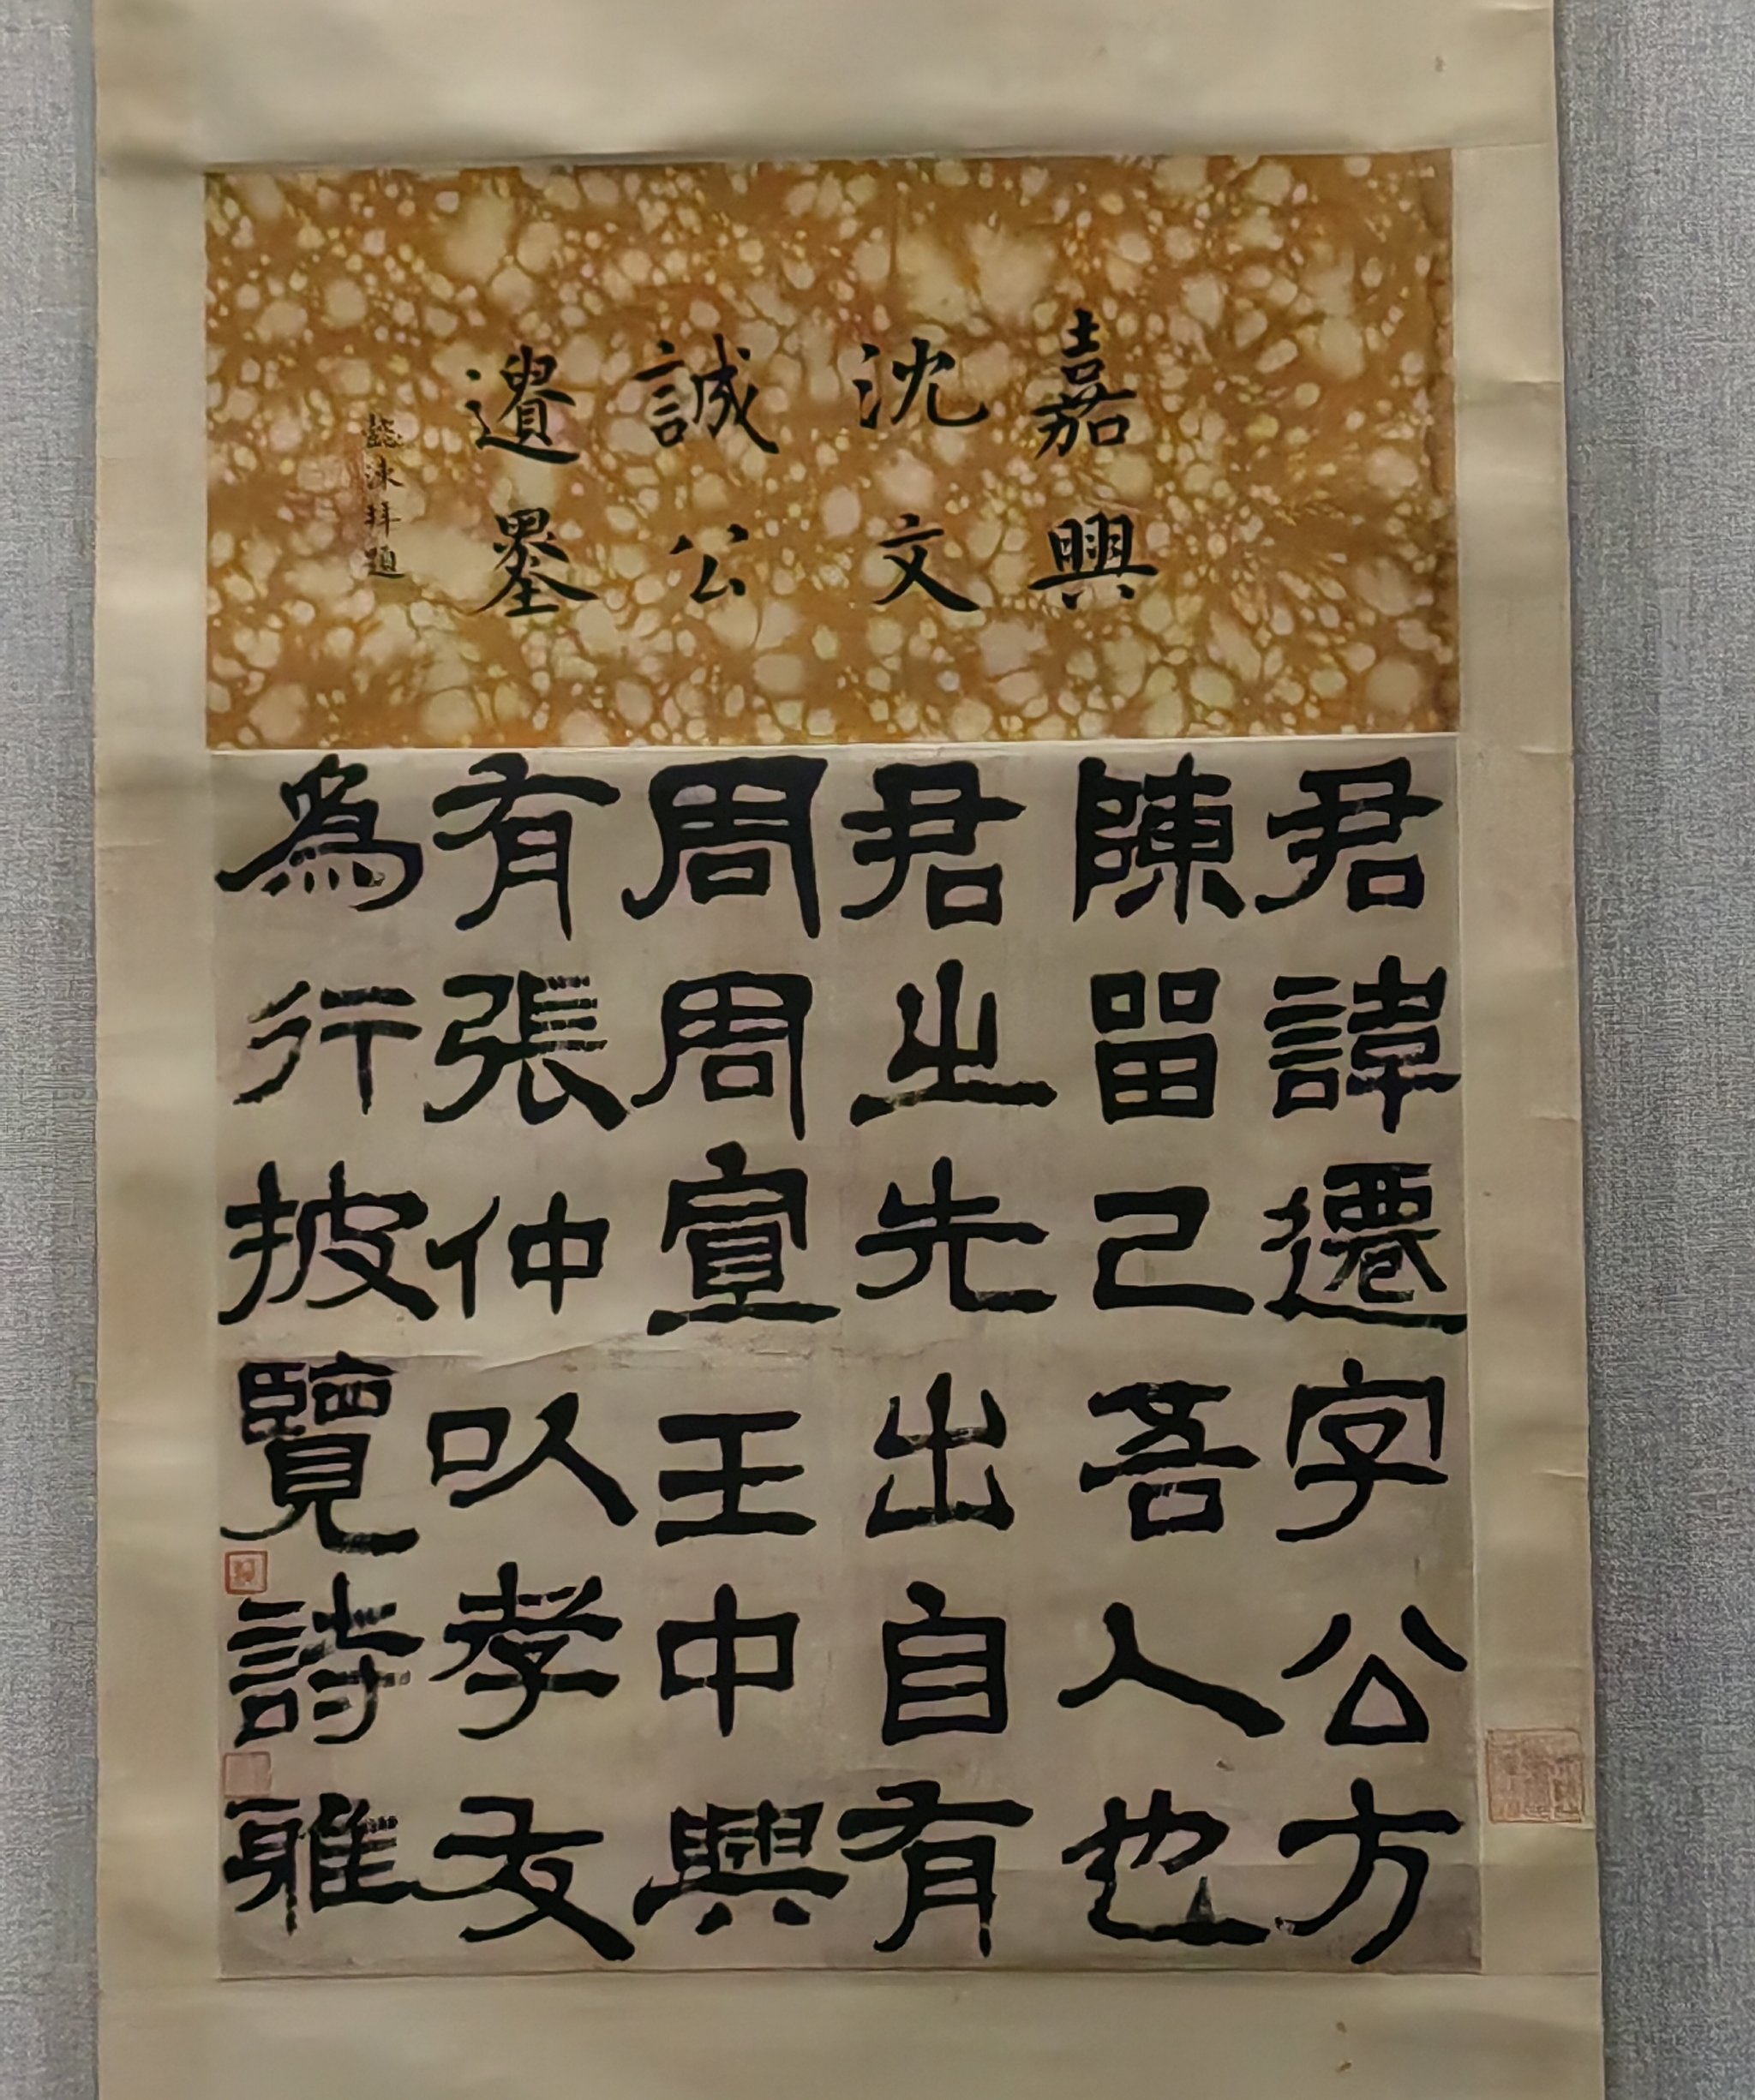 嘉興
沈文
誠公
遺墨
懿涑拜題
君諱遷字公方
陳留己吾人也
君之先出自有
周周宣王中興
有張仲以孝友
為行披覽詩雅